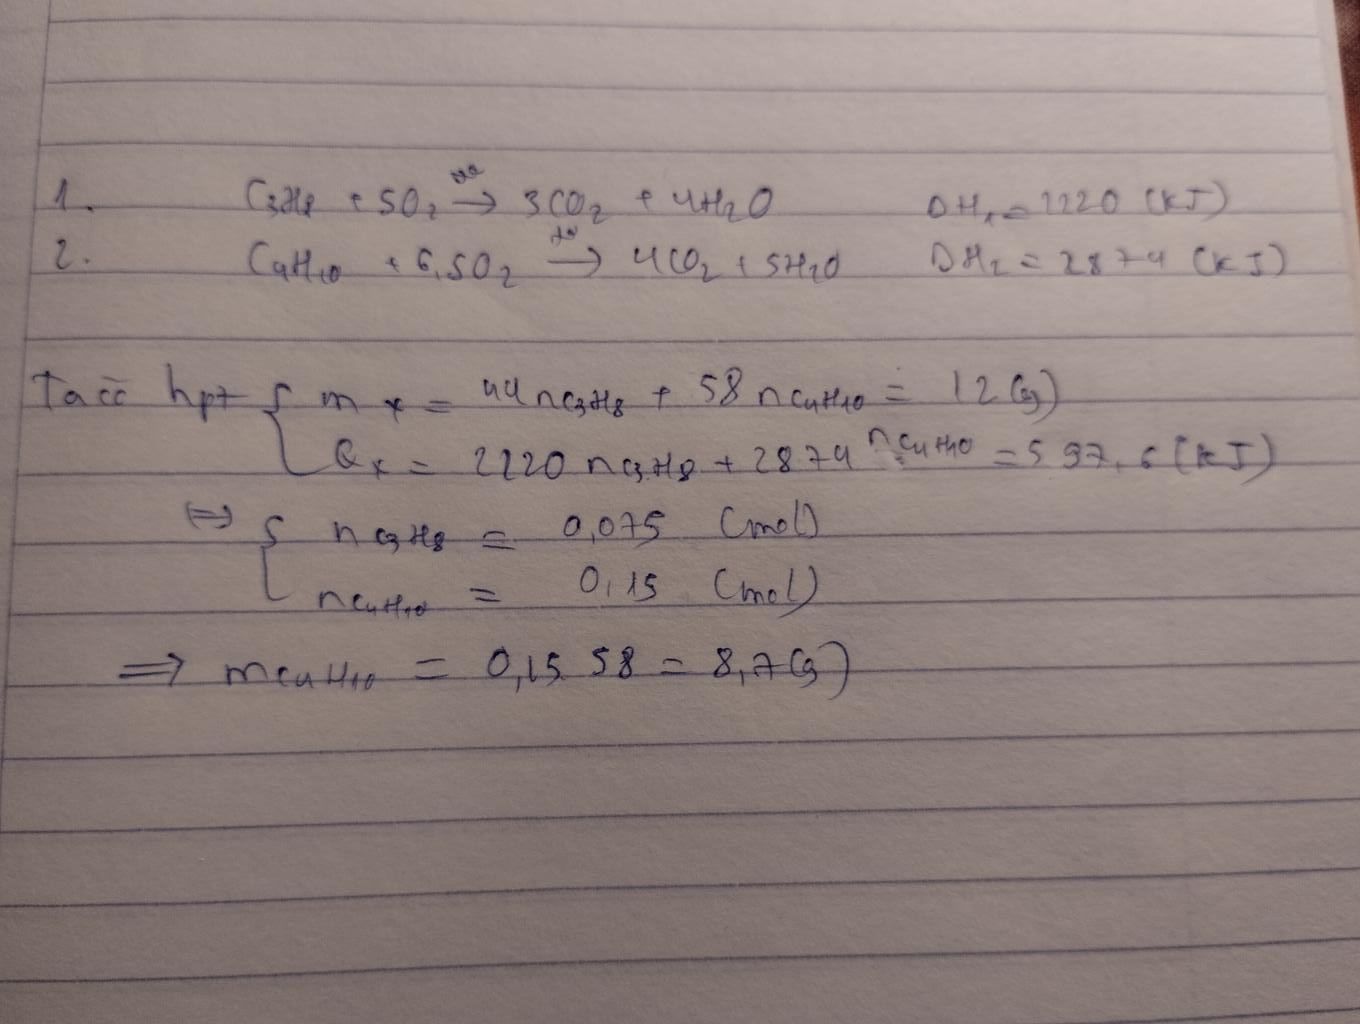 1. C3H8 + 5O2 t° → 3CO2 + 4H2O ΔH1 = 2220 (kJ)
2. C4H10 + 6,5O2 t° → 4CO2 + 5H2O ΔH2 = 2874 (kJ)
Ta có hpt { m x = 44 nC3H8 + 58 nC4H10 = 12 (g)
Q x = 2220 nC3H8 + 2874 nC4H10 = 597,6 (kJ)
⇔ { nC3H8 = 0,075 (mol)
nC4H10 = 0,15 (mol)
⇒ mC4H10 = 0,15.58 = 8,7 (g)